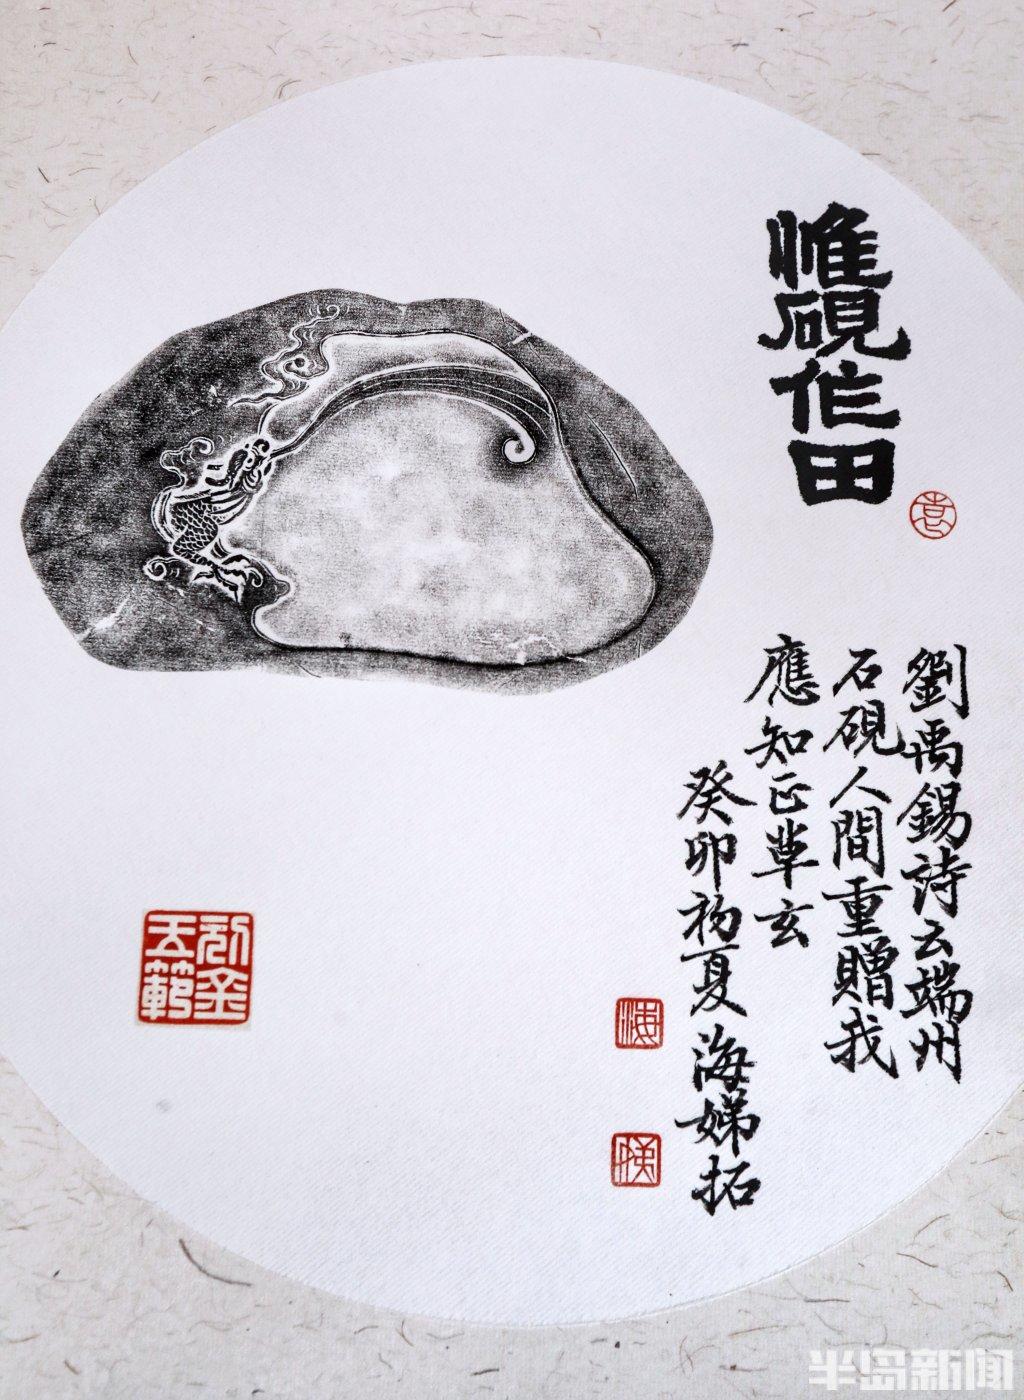 惟硯作田
袁
劉禹錫詩云端州
石硯人間重贈我
應知正草玄
癸卯初夏海娣拓
海
娣
半岛新闻